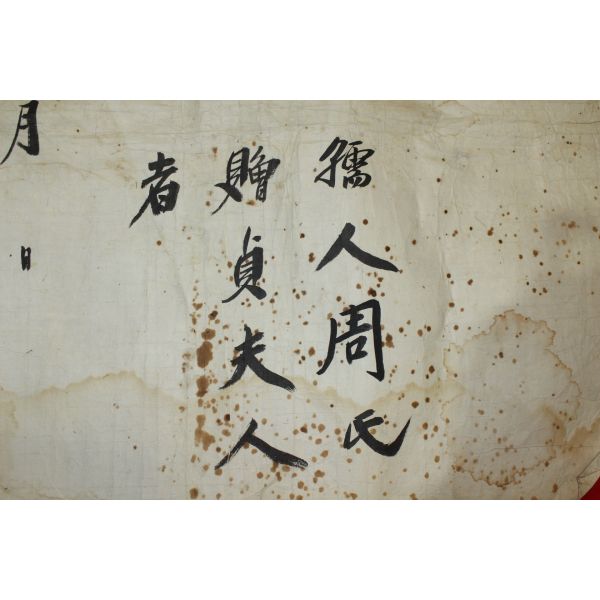 孺人周氏
贈貞夫人
者
月
日